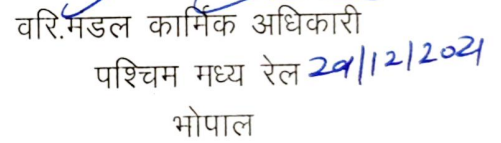 वरि.मंडल कार्मिक अधिकारी
पश्चिम मध्य रेल 29/12/2021
भोपाल